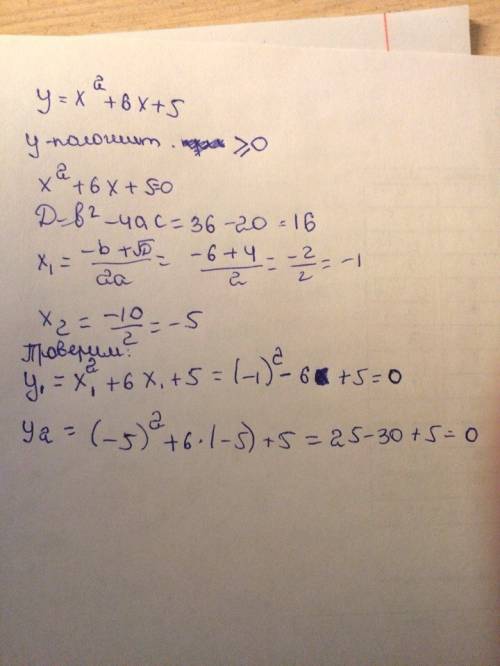 y = x² + 6x + 5
y - полошит. ≥ 0
x² + 6x + 5=0
D=b² - 4ac = 36 - 20 = 16
x₁ = (-b + √D)/2a = (-6 + 4)/2 = -2/2 = -1
x₂ = -10/2 = -5
Проверим:
y₁ = x₁² + 6x₁ + 5 = (-1)² - 6 + 5 = 0
y₂ = (-5)² + 6·(-5) + 5 = 25 - 30 + 5 = 0